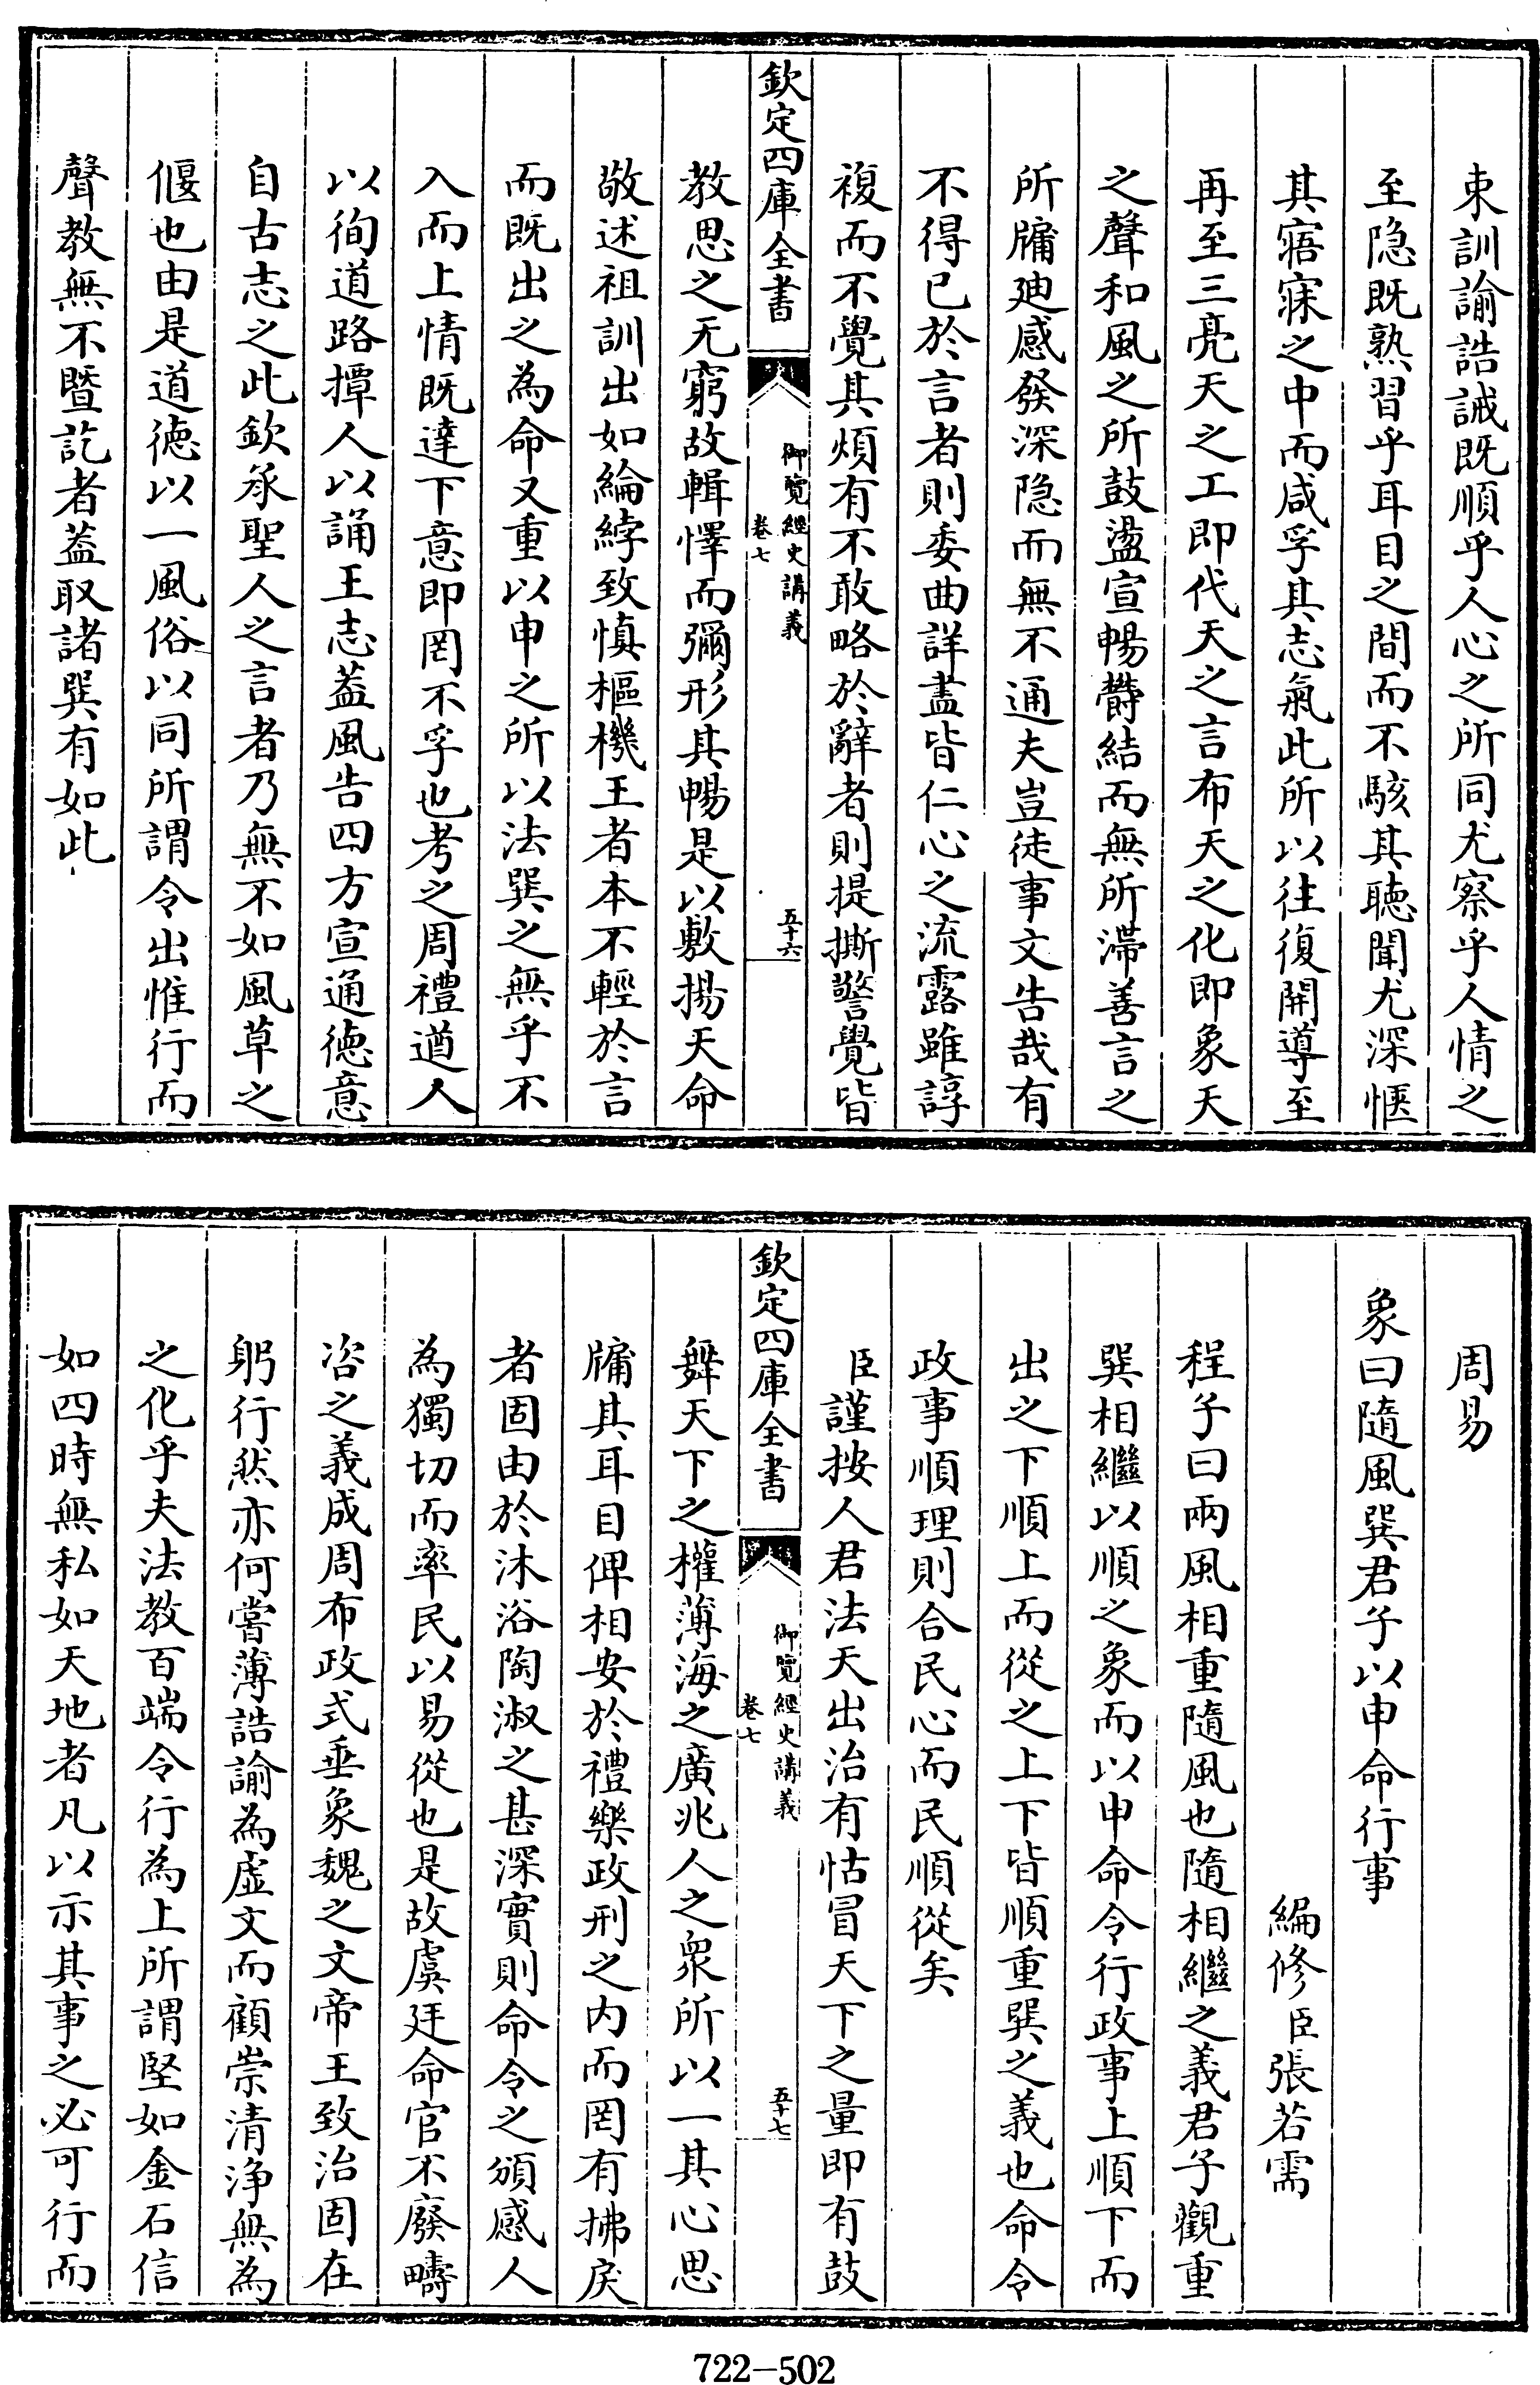 束訓諭誥誡既順乎人心之所同尤察乎人情之
至隐既熟習乎耳目之間而不駭其聽聞尤深愜
其寤寐之中而咸孚其志氣此所以往復開導至
再至三亮天之工即代天之言布天之化即象天
之聲和風之所鼓盪宣暢欝結而無所滯善言之
所牖廸感發深隐而無不通夫豈徒事文告哉有
不得已於言者則委曲詳盡皆仁心之流露雖諄
複而不覺其煩有不敢略於辭者則提撕警覺皆
欽定四庫全書
御覽經史講義
卷七
五十六
教思之无窮故輯懌而彌形其暢是以敷揚天命
敬述祖訓出如綸綍致慎樞機王者本不輕於言
而既出之為命又重以申之所以法巽之無乎不
入而上情既達下意即罔不孚也考之周禮遒人
以徇道路撢人以誦王志葢風告四方宣通徳意
自古志之此欽承聖人之言者乃無不如風草之
偃也由是道徳以一風俗以同所謂令出惟行而
聲教無不暨訖者葢取諸巽有如此
周易
象曰隨風巽君子以申命行事
編修臣張若需
程子曰兩風相重隨風也隨相繼之義君子觀重
巽相繼以順之象而以申命令行政事上順下而
出之下順上而從之上下皆順重巽之義也命令
政事順理則合民心而民順從矣
臣謹按人君法天出治有怙冒天下之量即有鼓
欽定四庫全書
御覽經史講義
卷七
五十七
舞天下之權薄海之廣兆人之衆所以一其心思
牖其耳目俾相安於禮樂政刑之内而罔有拂戾
者固由於沐浴陶淑之甚深實則命令之頒感人
為獨切而率民以易從也是故虞廷命官不廢疇
咨之義成周布政式垂象魏之文帝王致治固在
躬行然亦何嘗薄誥諭為虛文而顧崇清浄無為
之化乎夫法教百端令行為上所謂堅如金石信
如四時無私如天地者凡以示其事之必可行而
722-502